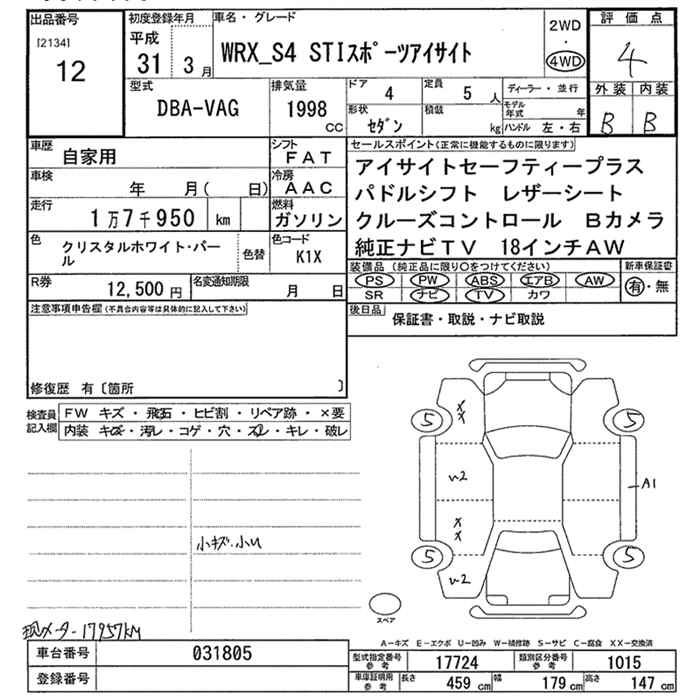 出品番号
[2134]
12
初度登録年月
平成
31 3 月
車名・グレード
WRX_S4 STIスポーツアイサイト
2WD
・
4WD
評価点
4
外装 内装
B B
型式
DBA-VAG
排気量
1998
CC
ドア
4
定員
5 人
形状
セダン
積載
kg
ディーラー・並行
モデル年式 年
ハンドル 左・右
車歴
自家用
シフト
FAT
車検
年 月( 日)
冷房
AAC
走行
1万7千950 km
燃料
ガソリン
色
クリスタルホワイト・パール
色替
色コード
K1X
R券
12,500 円
名変通知期限
月 日
セールスポイント(正常に機能するものに限ります)
アイサイトセーフティープラス
パドルシフト レザーシート
クルーズコントロール Bカメラ
純正ナビTV 18インチAW
装備品 (純正品に限り○をつけてください)
PS PW ABS エアB AW
SR ナビ TV カワ
新車保証書
有・無
後日品
保証書・取説・ナビ取説
注意事項申告欄(不具合内容等は具体的に記入して下さい)
修復歴 有〔箇所 〕
検査員記入欄
FW キズ・飛石・ヒビ割・リペア跡・×要
内装 キズ・汚レ・コゲ・穴・スレ・キレ・破レ
小キズ.小U
現メーター17957km
5 5
5 5
XX
w2
XX
w2
A1
スペア
A-キズ E-エクボ U-凹み W-補修跡 S-サビ C-腐食 XX-交換済
車台番号
031805
登録番号
型式指定番号 参考
17724
類別区分番号 参考
1015
車庫証明用 参考
長さ 459 cm 幅 179 cm 高さ 147 cm